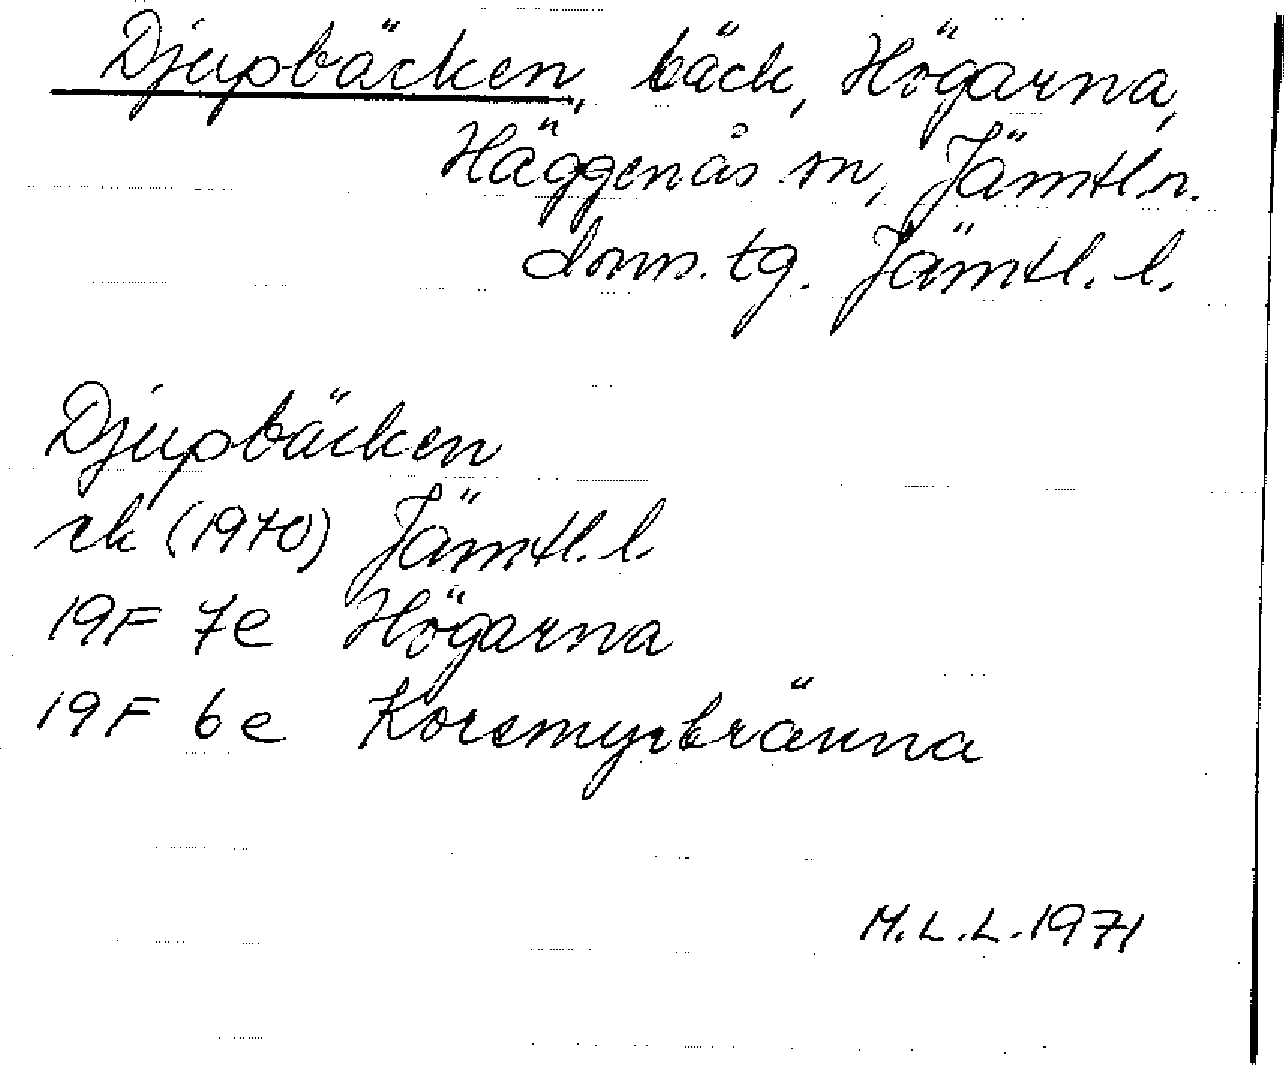 Djupbäcken, bäck, Högarna,
Häggenås sn, Jämtl n.
doms. tg. Jämtl. l.
Djupbäcken
rk (1970) Jämtl. l.
19F 7e Högarna
19F 6e Korsmyrbränna
M.L.L. 1971